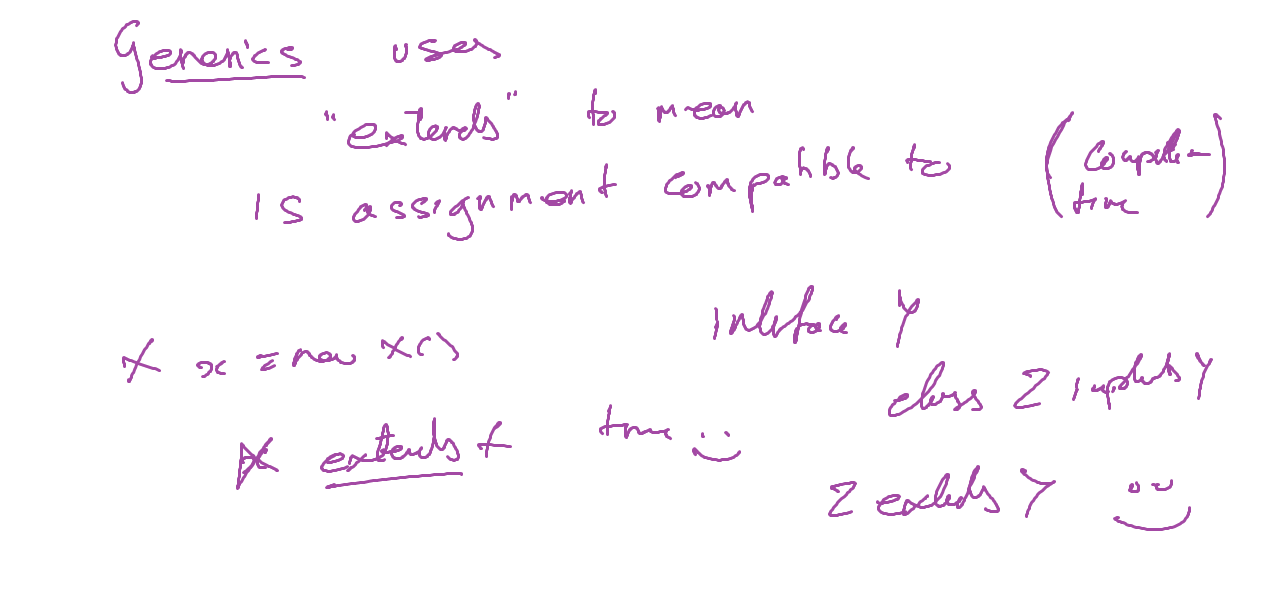 Generics uses
"extends" to mean
is assignment compatible to (compile-
time)
X x = new X()
X extends X true
interface Y
class Z implements Y
Z extends Y